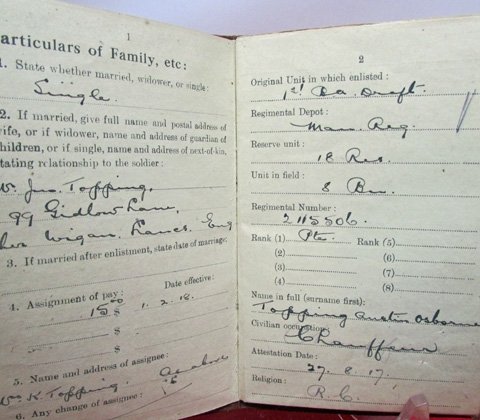 1
articulars of Family, etc:
1. State whether married, widower, or single:
Single.
2. If married, give full name and postal address of
wife, or if widower, name and address of guardian of
children, or if single, name and address of next-of-kin,
stating relationship to the soldier:
Jno. Topping,
99 Gidlow Lane,
Wigan, Lancs. Eng
3. If married after enlistment, state date of marriage:
4. Assignment of pay: Date effective:
15 00 $ 1. 2. 18.
$
$
5. Name and address of assignee:
as above
K. Topping.
6. Any change of assignee:
2
Original Unit in which enlisted:
1st Draft.
Regimental Depot:
Man. Reg.
Reserve unit:
18 Res.
Unit in field:
8 Bn.
Regimental Number:
2115506.
Rank (1) Pte. Rank (5)
(2) (6)
(3) (7)
(4) (8)
Name in full (surname first):
Topping Austin Osborne
Civilian occupation:
Chauffeur
Attestation Date:
27. 8. 17.
Religion:
R. C.